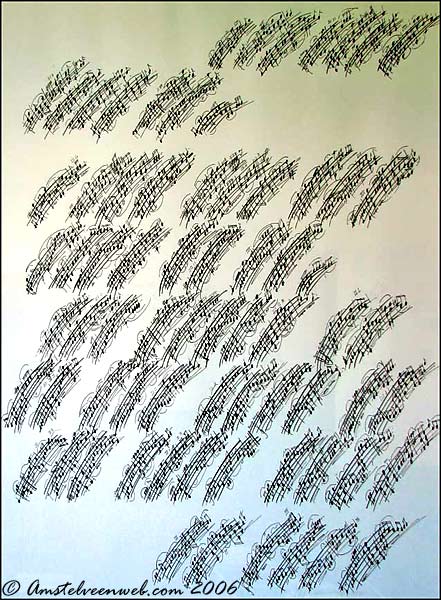 © Amstelveenweb.com 2006